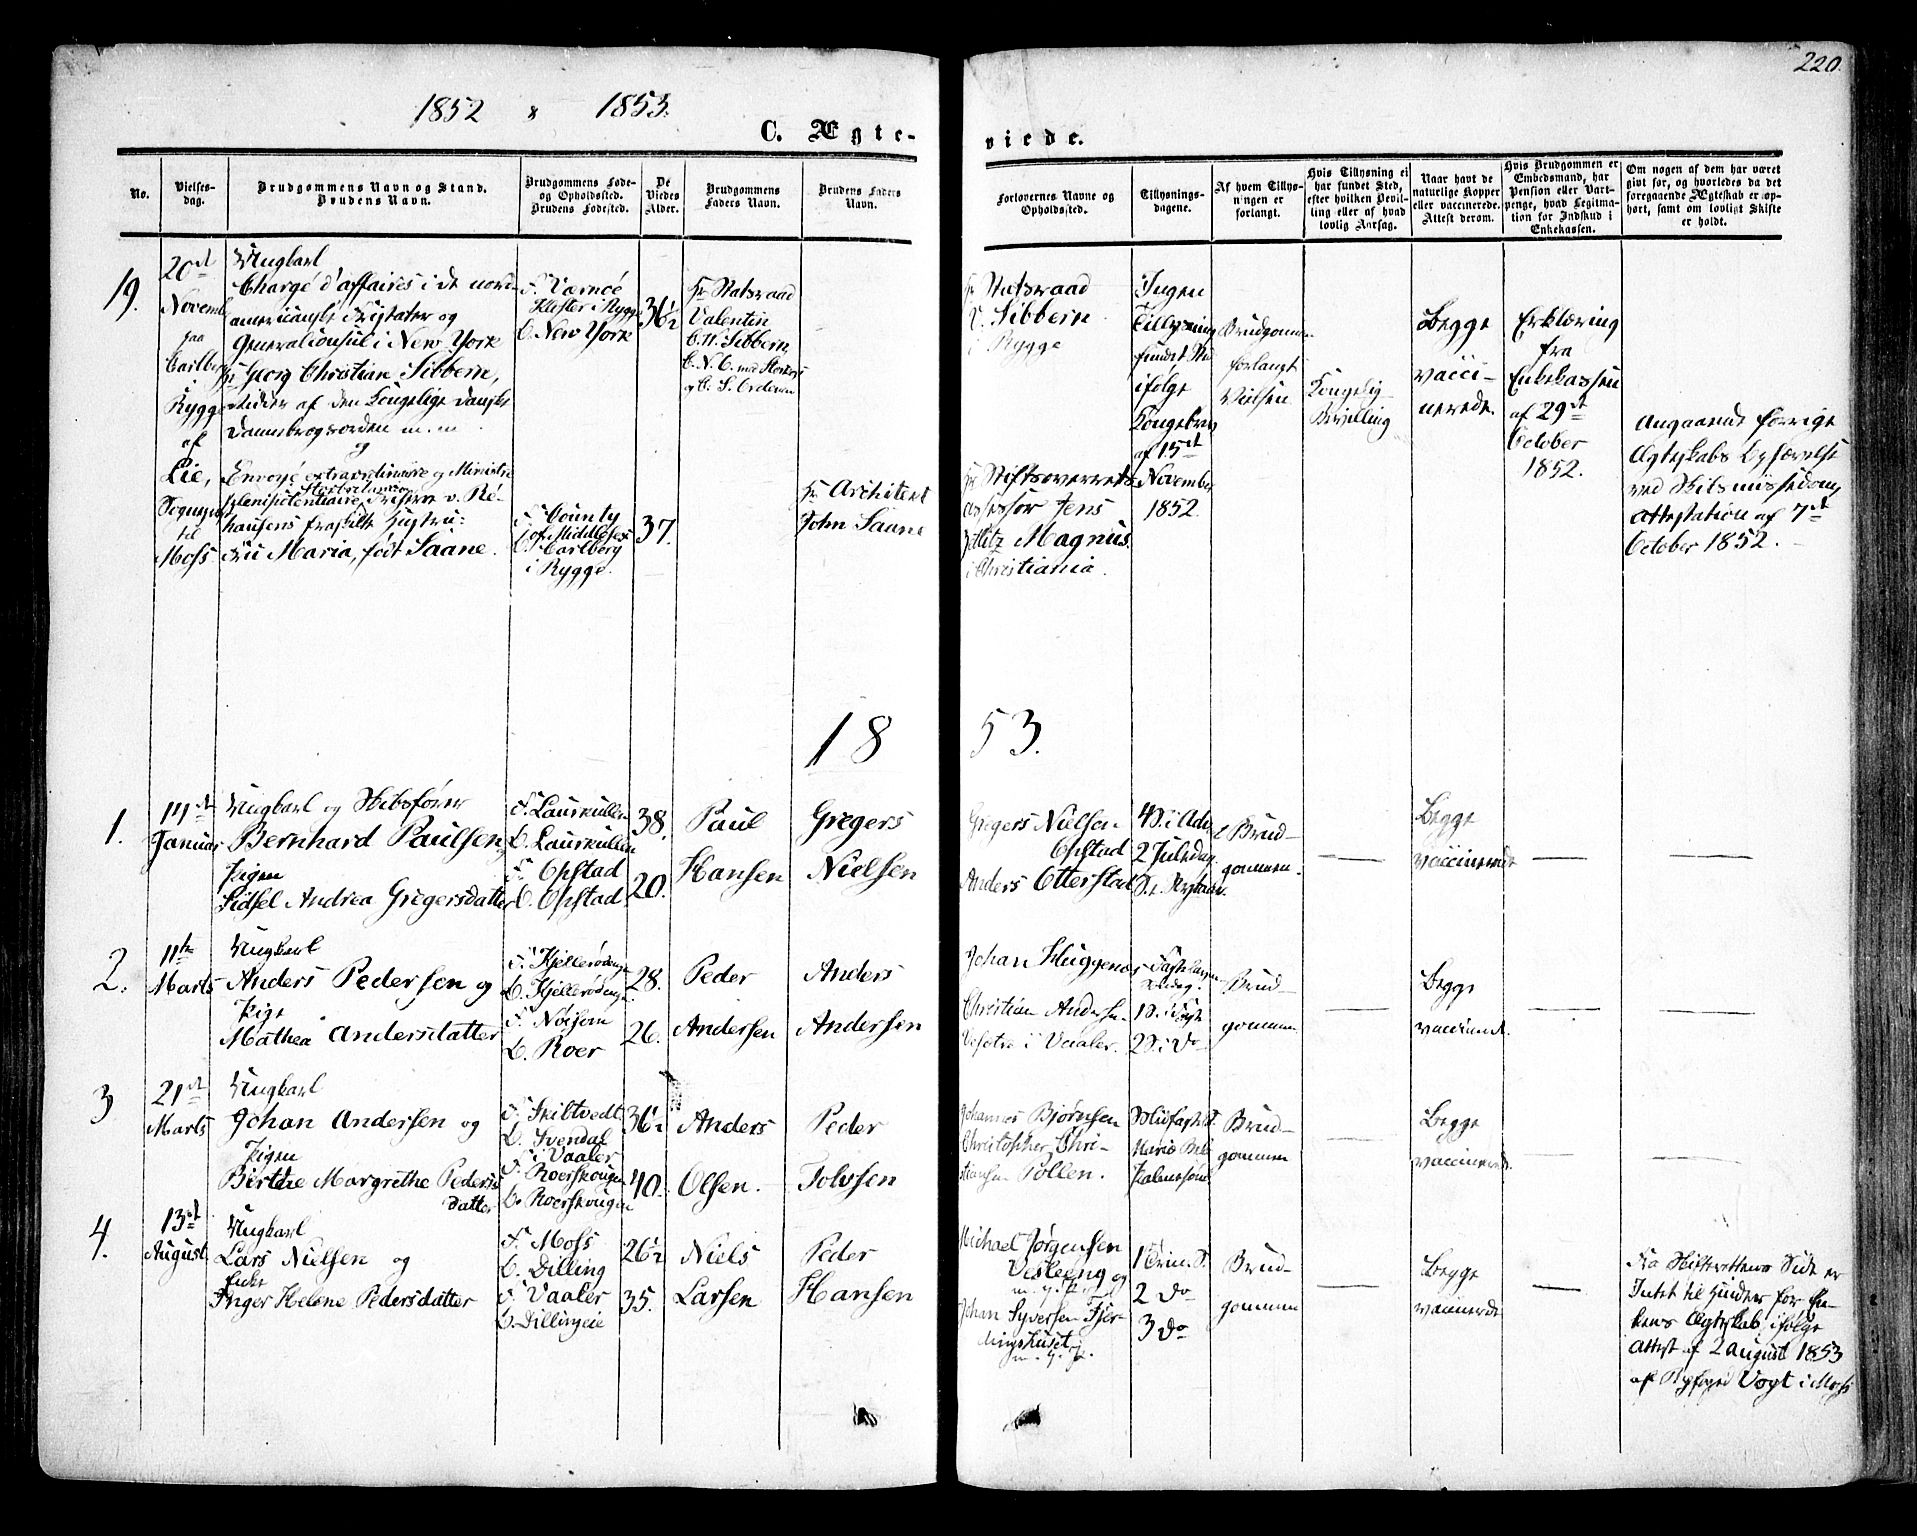 220.
1852 & 1853.
C. Ægteviede.
No.
Vielses-
dag.
Brudgommens Navn og Stand.
Brudens Navn.
Brudgommens Føde-
og Opholdssted.
Brudens Fødested.
De
Viedes
Alder.
Brudgommens
Faders Navn.
Brudens Faders
Navn.
Forlovernes Navne og
Opholdssted.
Tillysnings-
dagene.
Af hvem Tillys-
ningen er
forlangt.
Hvis Tillysning ei
har fundet Sted,
efter hvilken Bevil-
ling eller af hvad
lovlig Aarsag.
Naar havt de
naturlige Kopper
eller vaccinerede.
Attest derom.
Hvis Brudgommen er
Embedsmand, har
Pension eller Vart-
penge, hvad Legitima-
tion for Indskud i
Enkekassen.
Om nogen af dem har været
givt før, og hvorledes da det
foregaaende Ægteskab er op-
hørt, samt om lovligt Skifte
er holdt.
19.
20de
Novemb
paa
Carlberg
i
Rygge
af
Lie,
Sognepr.
til
Moss
Ungkarl
Chargé d'affaires i de nord
amerikanske Fristater og
Generalconsul i New York
Hr Georg Christian Sibbern,
Ridder af den Kongelige danske
Dannebrogsorden m. m.
og
Envoyé extraordinaire og Ministre
plenipotentiaire Friherre v. Re-
hausens fraskilte Hustru:
Frue Maria, født Saane.
F. Værnøe
Kloster i Rygge
O. New York
F. County
of Middlesex
O. Carlberg
i Rygge.
36½
37.
Hr Statsraad
Valentin
C. W. Sibbern,
Hr Architekt
John Saane
Hr Statsraad
V. Sibbern
i Rygge
Hr Stiftsoverrets-
assessor Jens
Magnus
i Christiania.
Ingen
Tillysning
fundet Sted
ifølge
Kongebrev
af 15de
November
1852.
Brudgommen
forlangt
Vielsen
Kongelig
Bevilling
Begge
vacci-
nerede.
Erklæring
fra
Enkekassen
af 29de
October
1852.
Angaaende forrige
Ægteskabs Ophævelse
Attestation af 7de
October 1852.
1853.
1.
14de
Januar
Ungkarl og Skibsfører
Bernhard Paulsen og
Pigen
Sidsel Andrea Gregersdatter
F. Laurkullen
O. Laurkullen
F. Opstad
O. Opstad
38.
20.
Paul
Hansen
Gregers
Nielsen
Gregers Nielsen
Opstad
Anders Otterstad
4 S. i Adv.
2 Juledag
S. e. Nytaar.
Brud-
gommen.
Begge
vaccinerede
2.
11te
Marts
Ungkarl
Anders Pedersen og
Pige
Mathea Andersdatter
F. Kjellerødeng
O. Kjellerødeng
O. Roer
28.
26.
Peder
Andersen
Anders
Andersen
Johan
Christian Andersen
i Vaaler.
2 S. i Do
Brud-
gommen
Begge
vaccinerede.
3
21de
Marts
Ungkarl
Johan Andersen og
Pigen
Birthe Margrethe Peders-
datter
F. Skibtvedt
O. Svendal
i Vaaler
F. Roerskougen
O. Roerskougen
36½
40.
Anders
Olsen.
Peder
Tolvsen
Johannes Bjørnsen
Christopher Chri-
stiansen Pollen.
Midfaste S.
Mariæ Beb.
Palmesønd.
Brud-
gommen
Begge
vaccinerede.
4.
13de
August
Ungkarl
Lars Nielsen og
Enke
Inger Helene Pedersdatter
F. Moss
O. Dilling
F. Vaaler
O. Dillingeie
26½
35.
Niels
Larsen
Peder
Hansen
Michael Jørgensen
og
Johan Syversen
1 Trin. S.
2 Do
3 Do
Brud-
gommen
Begge
vaccinerede
Fra Skifterettens Side er
Intet til Hinder for En-
kens Ægteskab ifølge
Attest af 2 August 1853
af Byfoged Vogt i Moss